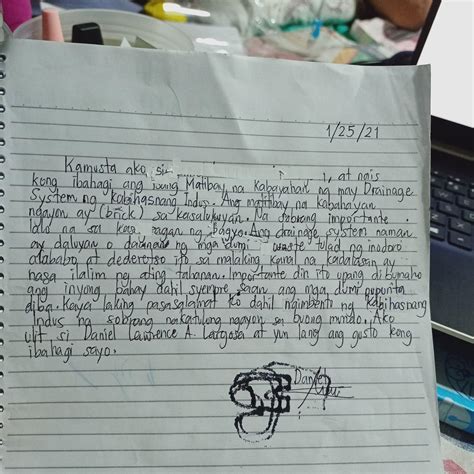 1/25/21
Kamusta ako, si , at nais
kong ibahagi ang Matibay na Kabayahan ng may Drainage
System ng kabihasnang Indus. Ang matibay na kabahayan
ngayon ay (brick) sa kasalukuyan. Na sobrang importante
lalo na sa bagyo. Ang drainage system naman
ay daluyan o daanan ng mga dumi waste tulad ng inodoro
at dederetso ito sa malaking kanal na kadalasan ay
nasa ilalim ng ating tahanan. Importante din ito upang di bumaho
ang inyong bahay dahil syempre saan ang mga dumi pupunta
diba. Kaya laking pasasalamat ko dahil naimbento ng kabihasnang
Indus ng sobrang nakatulong ngayon sa buong mundo. Ako
ulit si Daniel Lawrence A. Largosa at yun lang ang gusto kong
ibahagi sayo.
Daniel